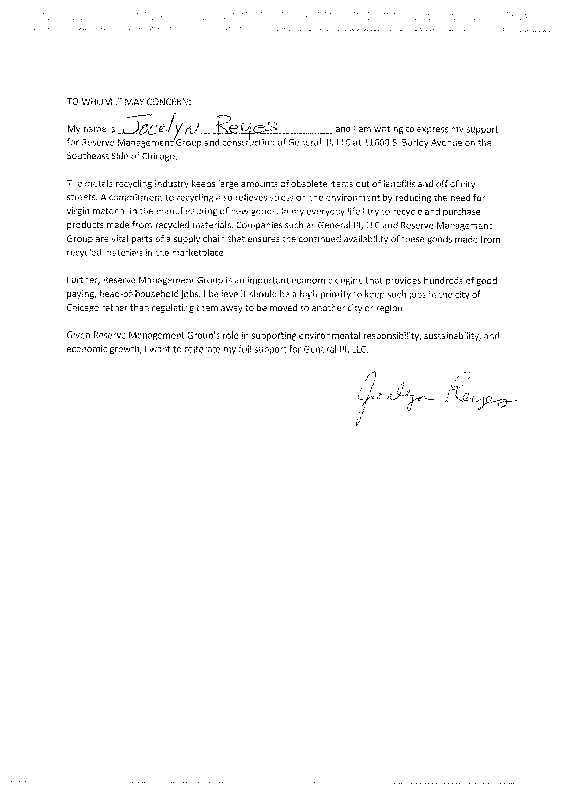 TO WHOM IT MAY CONCERN:
My name is Jocelyn Reyes and I am writing to express my support
for Reserve Management Group and construction of General III, LLC at 11600 S. Burley Avenue on the
Southeast Side of Chicago.
The metals recycling industry keeps large amounts of obsolete items out of landfills and off of city
streets. A commitment to recycling also relieves stress on the environment by reducing the need for
virgin material in the manufacturing of new goods. In my everyday life I try to recycle and purchase
products made from recycled materials. Companies such as General III, LLC and Reserve Management
Group are vital parts of a supply chain that ensures the continued availability of these goods made from
recycled materials in the marketplace.
Further, Reserve Management Group is an important economic engine that provides hundreds of good
paying, head-of-household jobs. I believe it should be a high priority to keep such jobs in the city of
Chicago rather than regulating them away to be moved to another city or region.
Given Reserve Management Group's role in supporting environmental responsibility, sustainability, and
economic growth, I want to reiterate my full support for General III, LLC.
Jocelyn Reyes